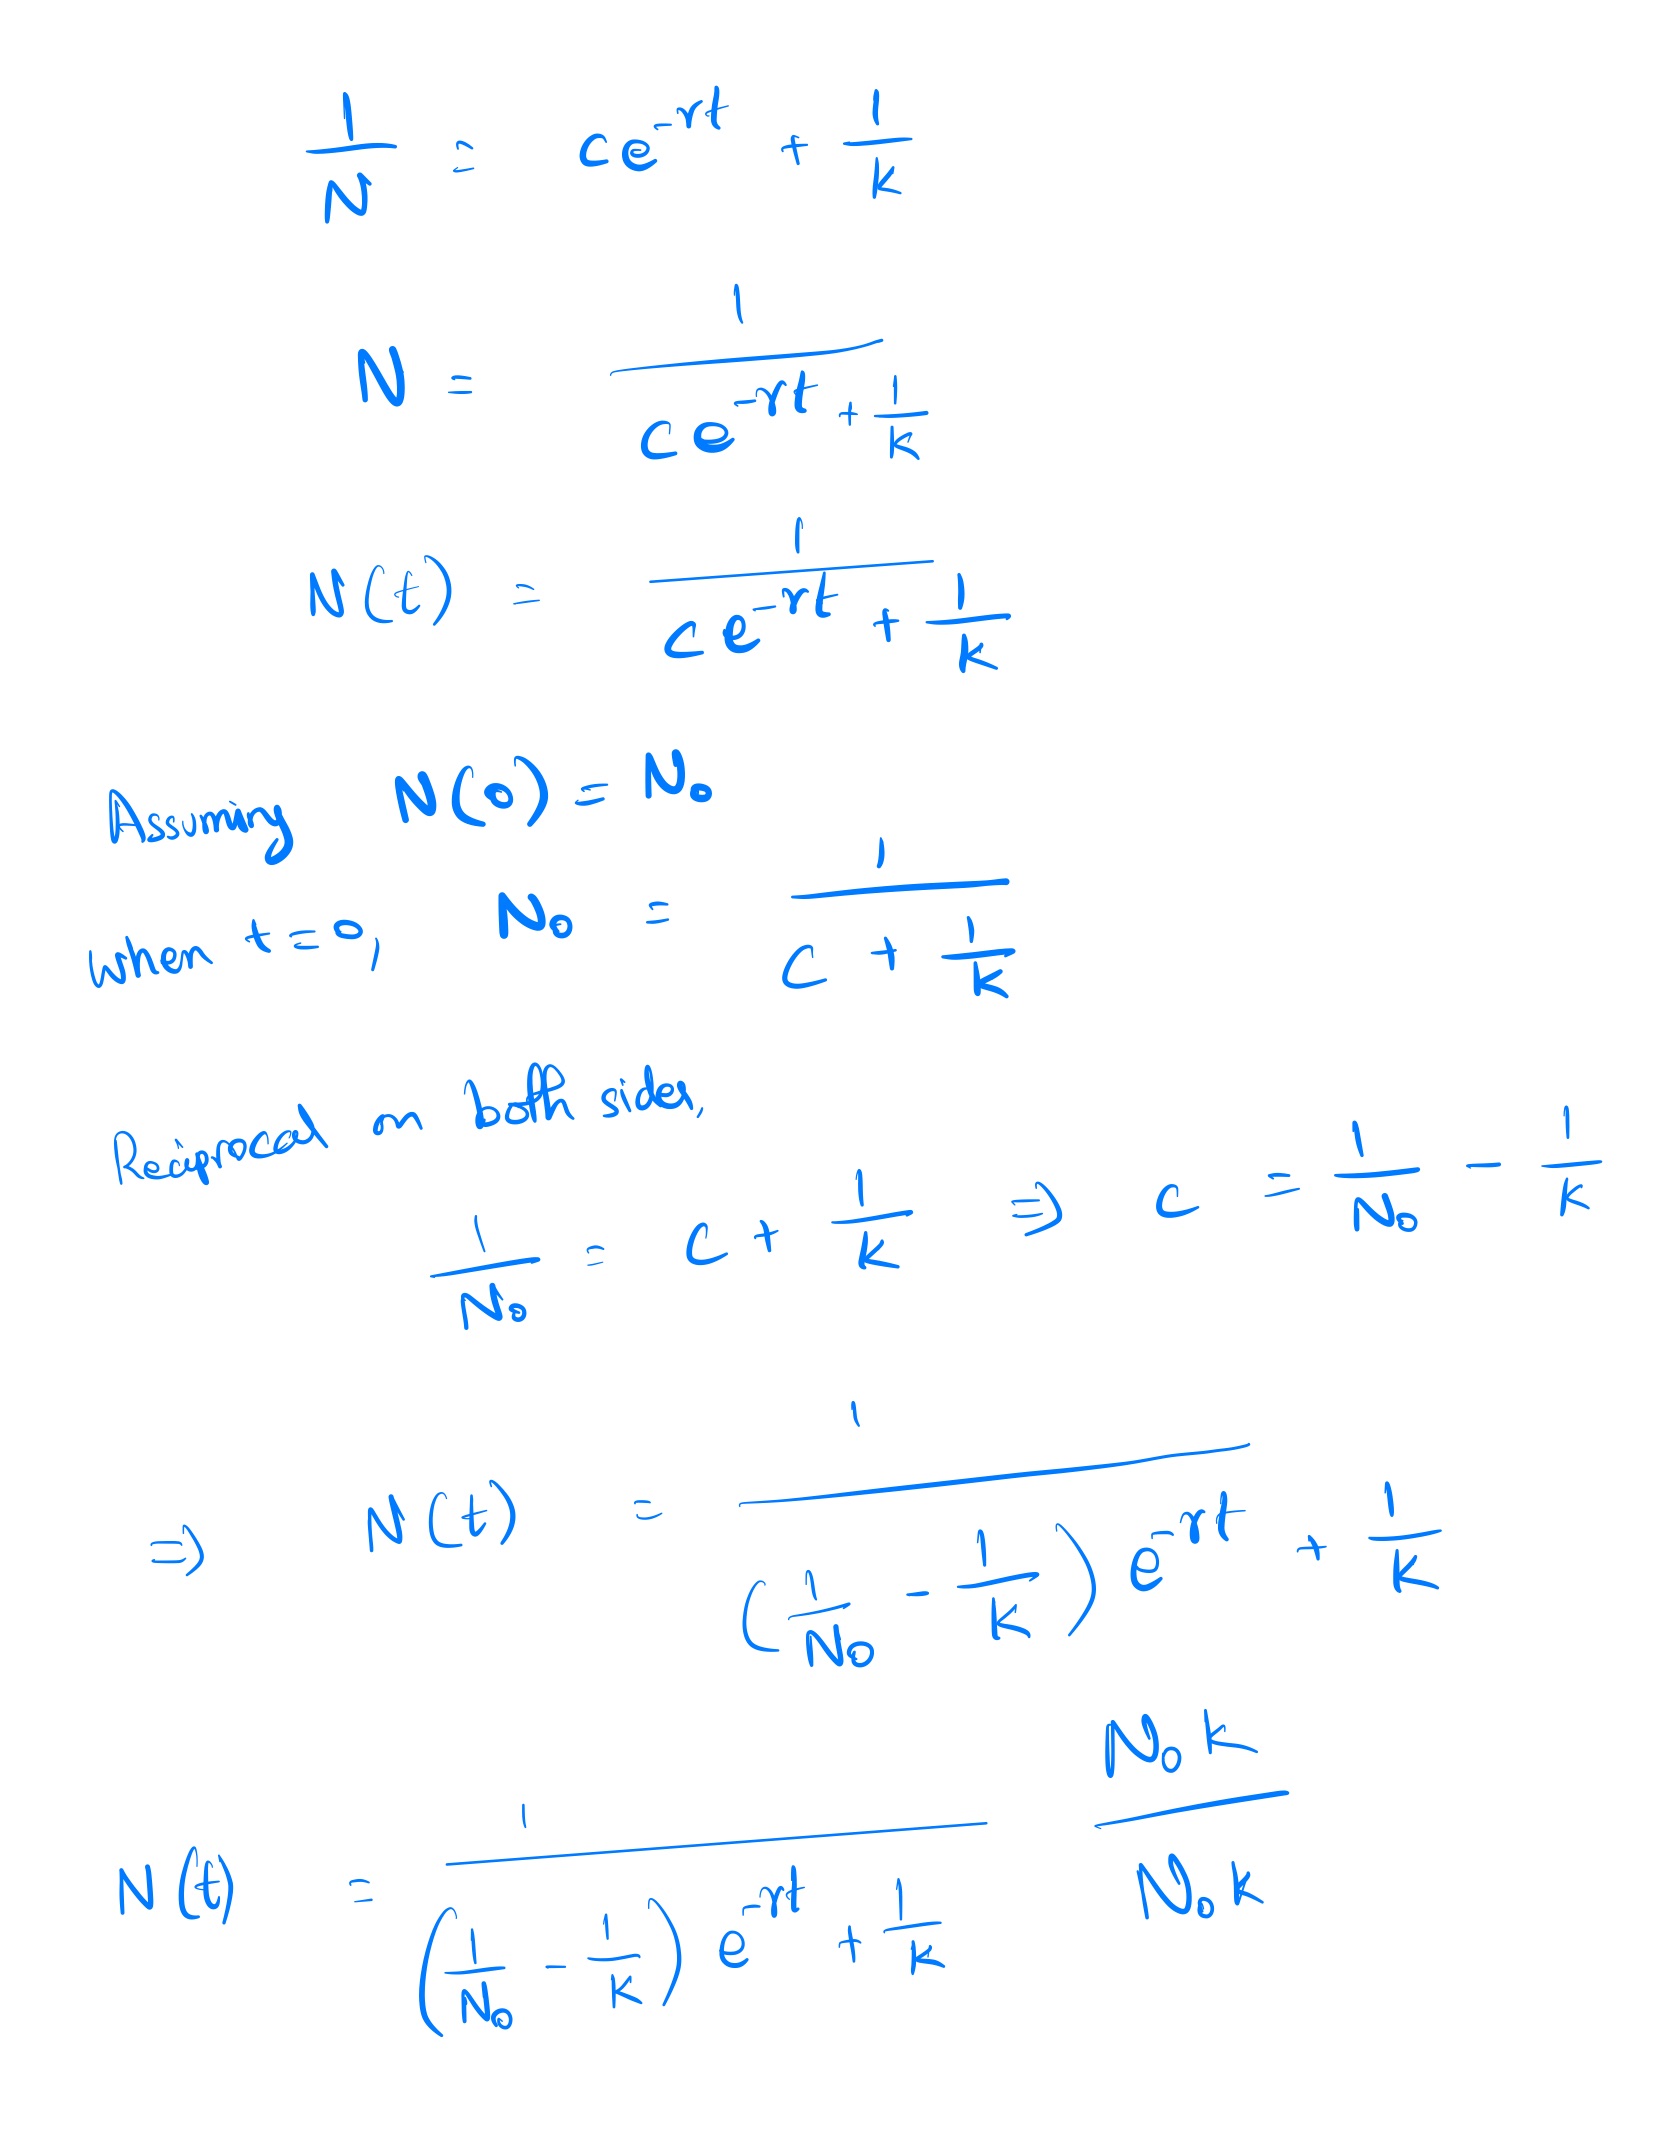 1/N = ce^{-rt} + 1/k
N = 1/(ce^{-rt} + 1/k)
N(t) = 1/(ce^{-rt} + 1/k)
Assuming N(0) = N₀
when t = 0, N₀ = 1/(c + 1/k)
Reciprocal on both sides,
1/N₀ = c + 1/k ⇒ c = 1/N₀ - 1/k
⇒ N(t) = 1/((1/N₀ - 1/k) e^{-rt} + 1/k)
N(t) = 1/((1/N₀ - 1/k) e^{-rt} + 1/k) N₀k/N₀k